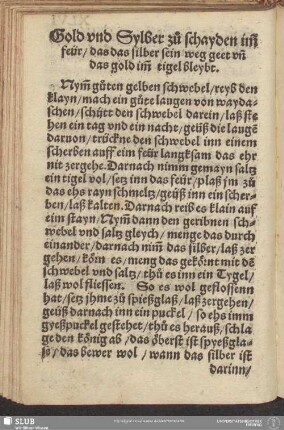 Gold vnd Sylber zů schayden im̃
feür/ das das silber sein weg geet vñ
das gold im̃ tigel bleybt.
Nym̃ gůten gelben schwebel/ reyb den
klayn/ mach ein gůte laugen von wayda-
schen/ schütt den schwebel darein/ laß ste
hen ein tag vnd ein nacht/ geüß die laugẽ
daruon/ trückne den schwebel inn einem
scherben auff ein feür langksam das ehr
nit zergehe. Darnach nimm gemayn saltz
ein tigel vol/ setz inn das feür/ plaß jm zů
das ehs rayn schmeltz/ geüß inn ein scher-
ben/ laß kalten. Darnach reib es klain auff
ein stayn/ Nym̃ dann den geribnen sch-
webel vnd saltz gleych/ menge das durch
einander/ darnach nim̃ das silber/ laß zer
gehen/ köm es/ meng das gekönt mit dẽ
schwebel vnd saltz/ thů es inn ein Tygel/
laß wol fliessen. So es wol geflossenn
hat/ setz jhme zů spießglaß/ laß zergehen/
geüß darnach inn ein puckel/ so ehs inn
gyeßpuckel gestehet/ thů es herauß/ schla
ge den könig ab/ das öberst ist spyeßgla-
ß/ das bewer wol/ wann das silber ist
darinn/
SLUB
Wir führen Wissen.